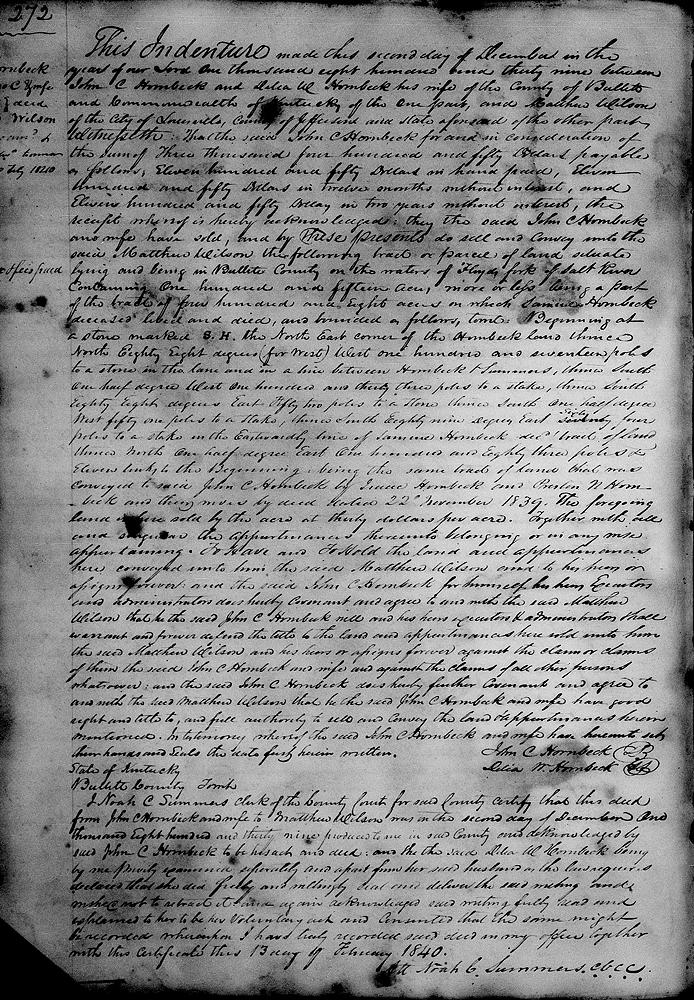 272
This Indenture made this second day of December in the
year of our Lord One thousand eight hundred and thirty nine between
John C Hornbeck and Delia W Hornbeck his wife of the County of Bullitt
and Commonwealth of Kentucky of the One part, and Matthew Wilson
of the City of Louisville, County of Jefferson and state aforesaid of the other part,
Witnesseth: That the said John C Hornbeck for and in consideration of
the sum of Three thousand four hundred and fifty Dollars payable
as follows, Eleven hundred and fifty Dollars in hand paid, Eleven
hundred and fifty Dollars in twelve months without interest, and
Eleven hundred and fifty Dollars in two years without interest, the
receipt whereof is hereby acknowledged, they the said John C Hornbeck
and wife have sold, and by These presents do sell and Convey unto the
said Matthew Wilson the following tract or parcel of land situate
lying and being in Bullitt County on the waters of Floyds fork of Salt River
Containing One hundred and fifteen acres, more or less being a part
of the tract of four hundred and Eight acres on which Samuel Hornbeck
deceased lived and died, and bounded as follows, towit: Beginning at
a stone marked S. H. the North East corner of the Hornbeck land thence
North Eighty Eight degrees (for West) West one hundred and seventeen poles
to a stone in the lane and in a line between Hornbeck & Summers, thence South
One half degree West One hundred and thirty three poles to a stake, thence South
Eighty Eight degrees East Fifty two poles to a stone thence South One half degree
West fifty one poles to a stake, thence South Eighty nine degrees East four
poles to a stake in the Eastwardly line of Samuel Hornbeck decd tract of land
thence North One half degree East One hundred and Eighty three poles &
Eleven links to the Beginning: being the same tract of land that was
conveyed to said John C Hornbeck by Isaac Hornbeck and W Horn-
-beck and by deed dated 22d November 1839. The foregoing
land is here sold by the acre at thirty dollars per acre. Together with all
and singular the appurtenances thereunto belonging or in any wise
appurtaining. To Have and To Hold the land and appurtenances
here conveyed unto him the said Matthew Wilson and to his heirs or
assigns forever: and the said John C Hornbeck for himself his heirs Executors
and administrators does hereby Covenant and agree to and with the said Matthew
Wilson that he the said John C Hornbeck will and his heirs executors & administrators shall
warrant and forever defend the title to the land and appurtenances here sold unto him
the said Matthew Wilson and his heirs or assigns forever against the claim or claims
of them the said John C Hornbeck and wife and against the claims of all other persons
whatsoever: and the said John C Hornbeck does hereby further Covenant and agree to
and with the said Matthew Wilson that he the said John C Hornbeck and wife have good
right and title to, and full authority to sell and Convey the land & appurtenances herein
mentioned. In testimony whereof the said John C Hornbeck and wife have hereunto set
their hands and Seals the date first herein written.
John C Hornbeck
Delia W. Hornbeck
State of Kentucky
Bullitt County Towit
I Noah C Summers clerk of the County Court for said County certify that this deed
from John C Hornbeck and wife to Matthew Wilson was on the second day of December One
thousand Eight hundred and thirty nine produced to me in said County and acknowledged by
said John C Hornbeck to be his act and deed: and the the said Delia W Hornbeck being
by me privily examined seperately and apart from her said husband as the law requires
declared that she did freely and willingly seal and deliver the said writing and
wishes not to retract it: and again acknowledged said writing fully read and
explained to her to be her voluntary act and Consented that the same might
be recorded whereupon I have truly recorded said deed in my office together
with this Certificate this 13 day of February 1840.
Att Noah C. Summers. c.b.c.c.